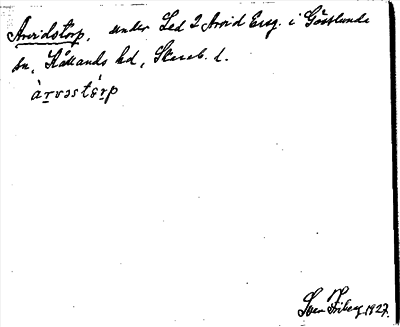 Arvidstorp, under Led 2 Arvid Ersg. i Gösslunda
sn, Kållands hd, Skarab. l.
àrvəstɷ́rp
Sven Friberg 1927.